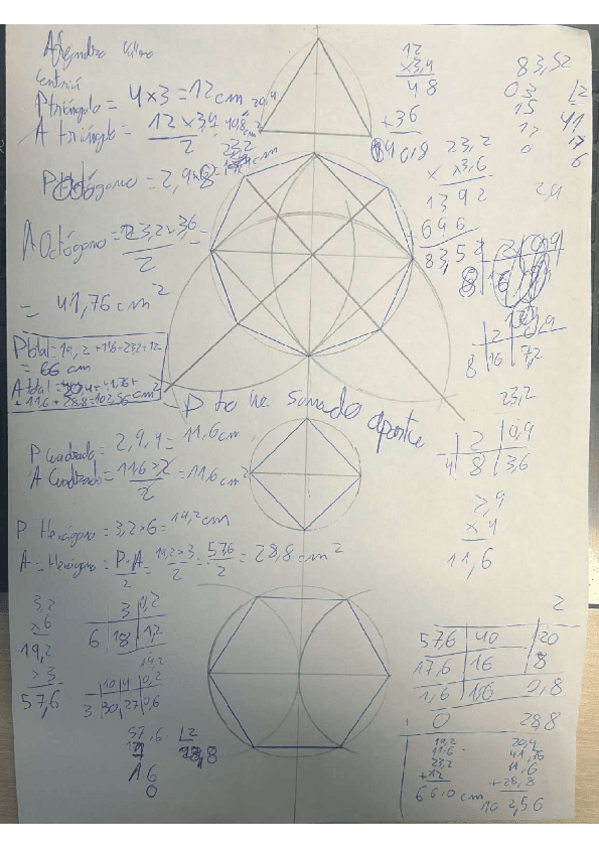 Alejandro
P triángulo = 4 x 3 = 12 cm
A triángulo = 12 x 3,4 / 2 = 20,4 cm²
P Octógono = 2,9 x 8 = 23,2 cm
A Octógono = 23,2 x 3,6 / 2 =
= 41,76 cm²
P total = 19,2 + 11,6 + 23,2 + 12
= 66 cm
A total = 20,4 + 41,76 +
+ 11,6 + 28,8 = 102,56 cm²
lo he sumado aparte
P Cuadrado = 2,9 . 4 = 11,6 cm
A Cuadrado = 11,6 x 2 / 2 = 11,6 cm²
P Hexágono = 3,2 x 6 = 19,2 cm
A = Hexágono = P . A / 2 = 19,2 x 3 / 2 = 57,6 / 2 = 28,8 cm²
12
x 3,4
48
+ 36
40,8
23,2
x 3,6
1392
+ 696
83,52
83,52 2
03 41
15 17
1 6
0
2 0,9
8 16 7,2
23,2
2 0,9
4 8 3,6
2,9
x 4
11,6
3,2
x 6
19,2
x 3
57,6
3 0,2
6 18 1,2
19,2
10 4 0,2
3 30 27 0,6
57,6 2
28,8
16
0
2
57,6 40 20
17,6 16 8
1,6 1,6 0,8
0 28,8
19,2
11,6
23,2
+ 12
66,0 cm
20,4
41,76
11,6
+ 28,8
102,56